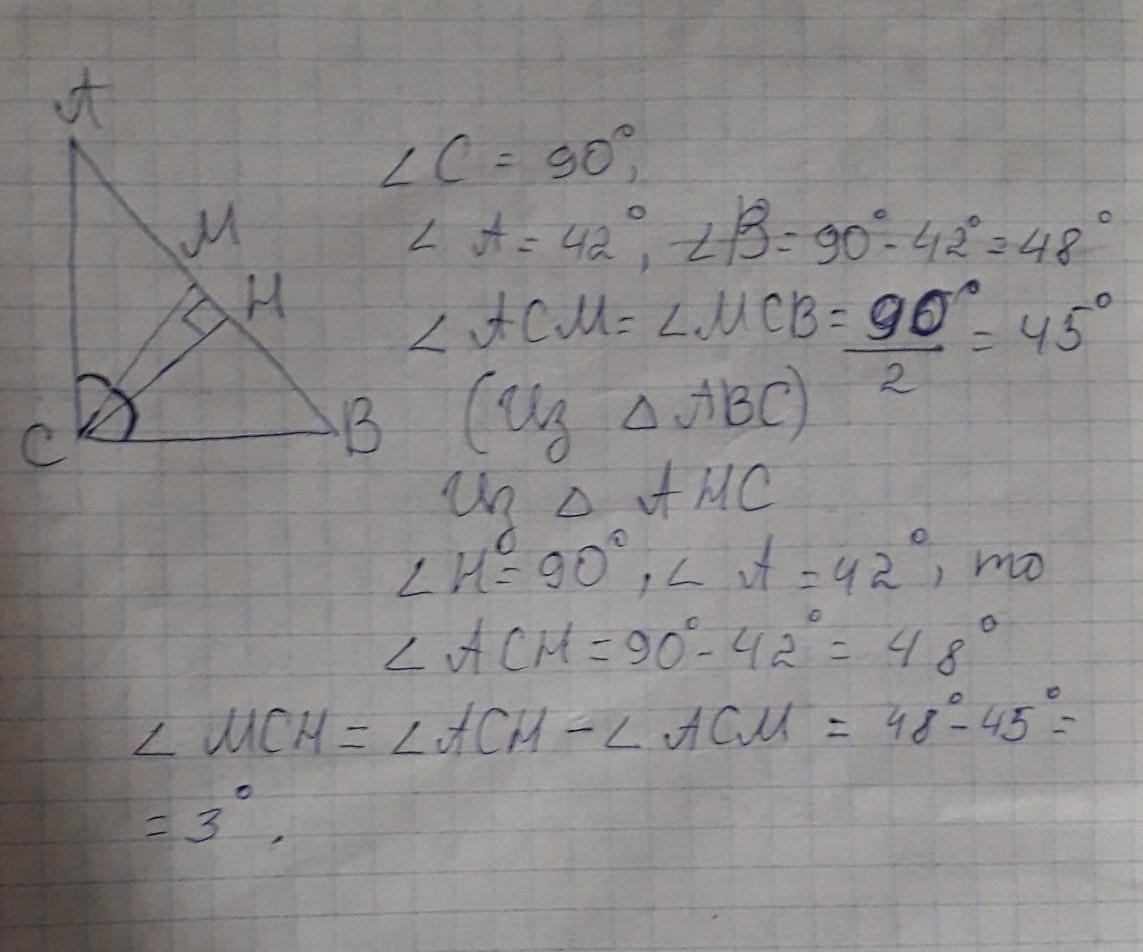 A
M
H
C
B
∠C = 90°,
∠A = 42°, ∠B = 90° - 42° = 48°
∠ACM = ∠MCB = 90°/2 = 45°
(Из △ABC)
Из △ AHC
∠H = 90°, ∠A = 42°, то
∠ACH = 90° - 42° = 48°
∠MCH = ∠ACH - ∠ACM = 48° - 45° =
= 3°.